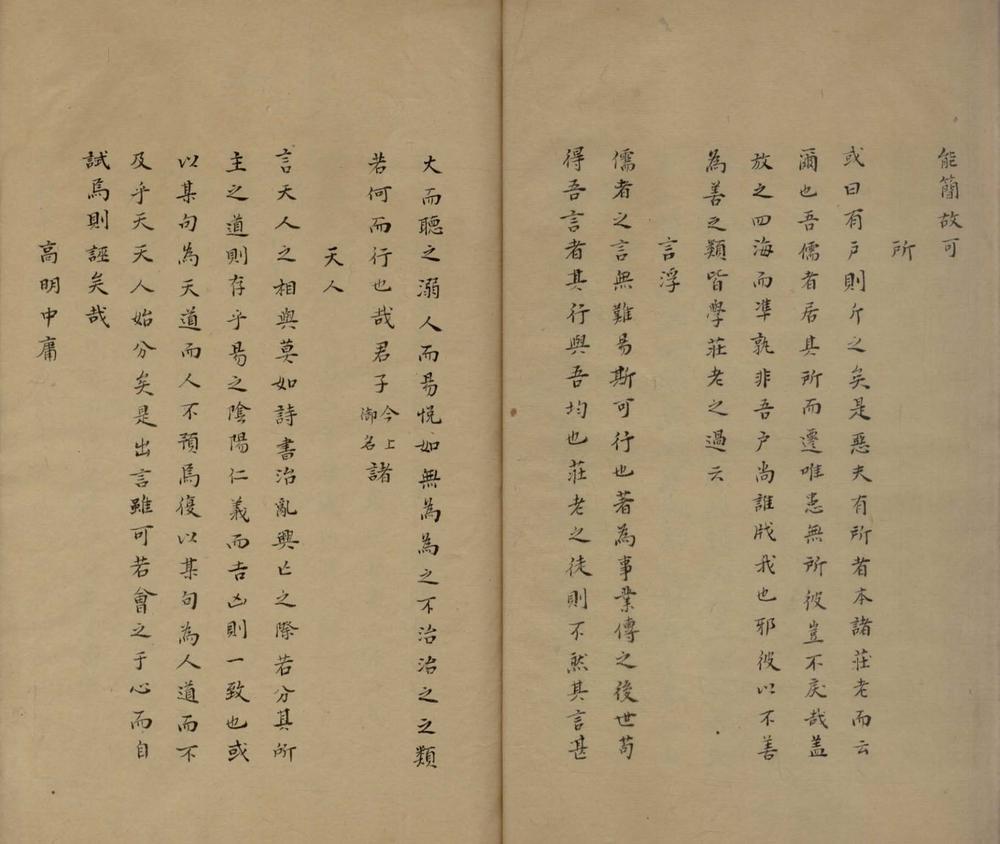 能簡故可
所
或曰有戶則斤之矣是惡夫有所者本諸莊老而云
爾也吾儒者居其所而遷唯恚無所彼豈不戾哉盖
放之四海而準孰非吾戶尚誰戕我也邪彼以不善
為善之類皆學莊老之過云
言浮
儒者之言無難易斯可行也著為事業傳之後世苟
得吾言者其行與吾均也莊老之徒則不然其言甚
大而聽之溺人而易悅如無為為之不治治之之類
若何而行也哉君子今上御名諸
天人
言天人之相與莫如詩書治亂興亡之際若分其所
主之道則存乎易之陰陽仁義而吉凶則一致也或
以某句為天道而人不預焉復以某句為人道而不
及乎天天人始分矣是出言雖可若會之于心而自
試焉則誣矣哉
高明中庸